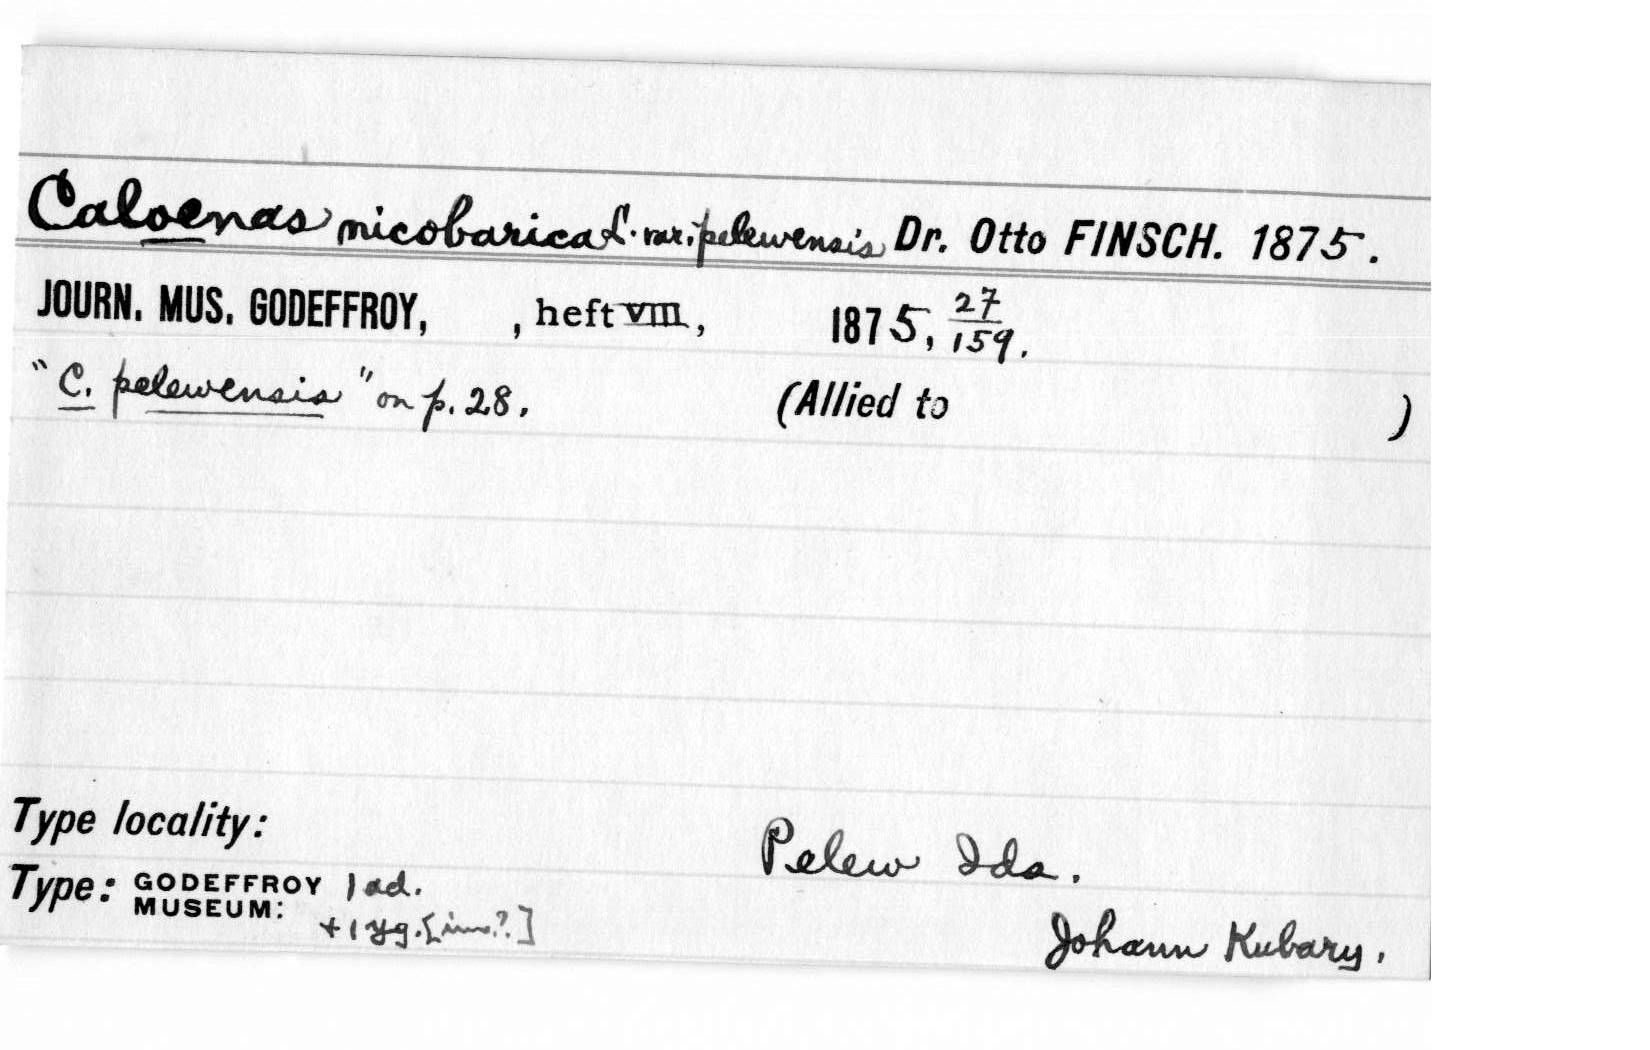 Caloenas nicobarica L. var. pelewensis Dr. Otto FINSCH. 1875.
JOURN. MUS. GODEFFROY, , heft VIII, 1875, 27/159.
"C. pelewensis" on p. 28. (Allied to )
Type locality: Pelew Ids.
Type: GODEFFROY MUSEUM: 1 ad.
+ 1 yg. [imm.?]
Johann Kubary.